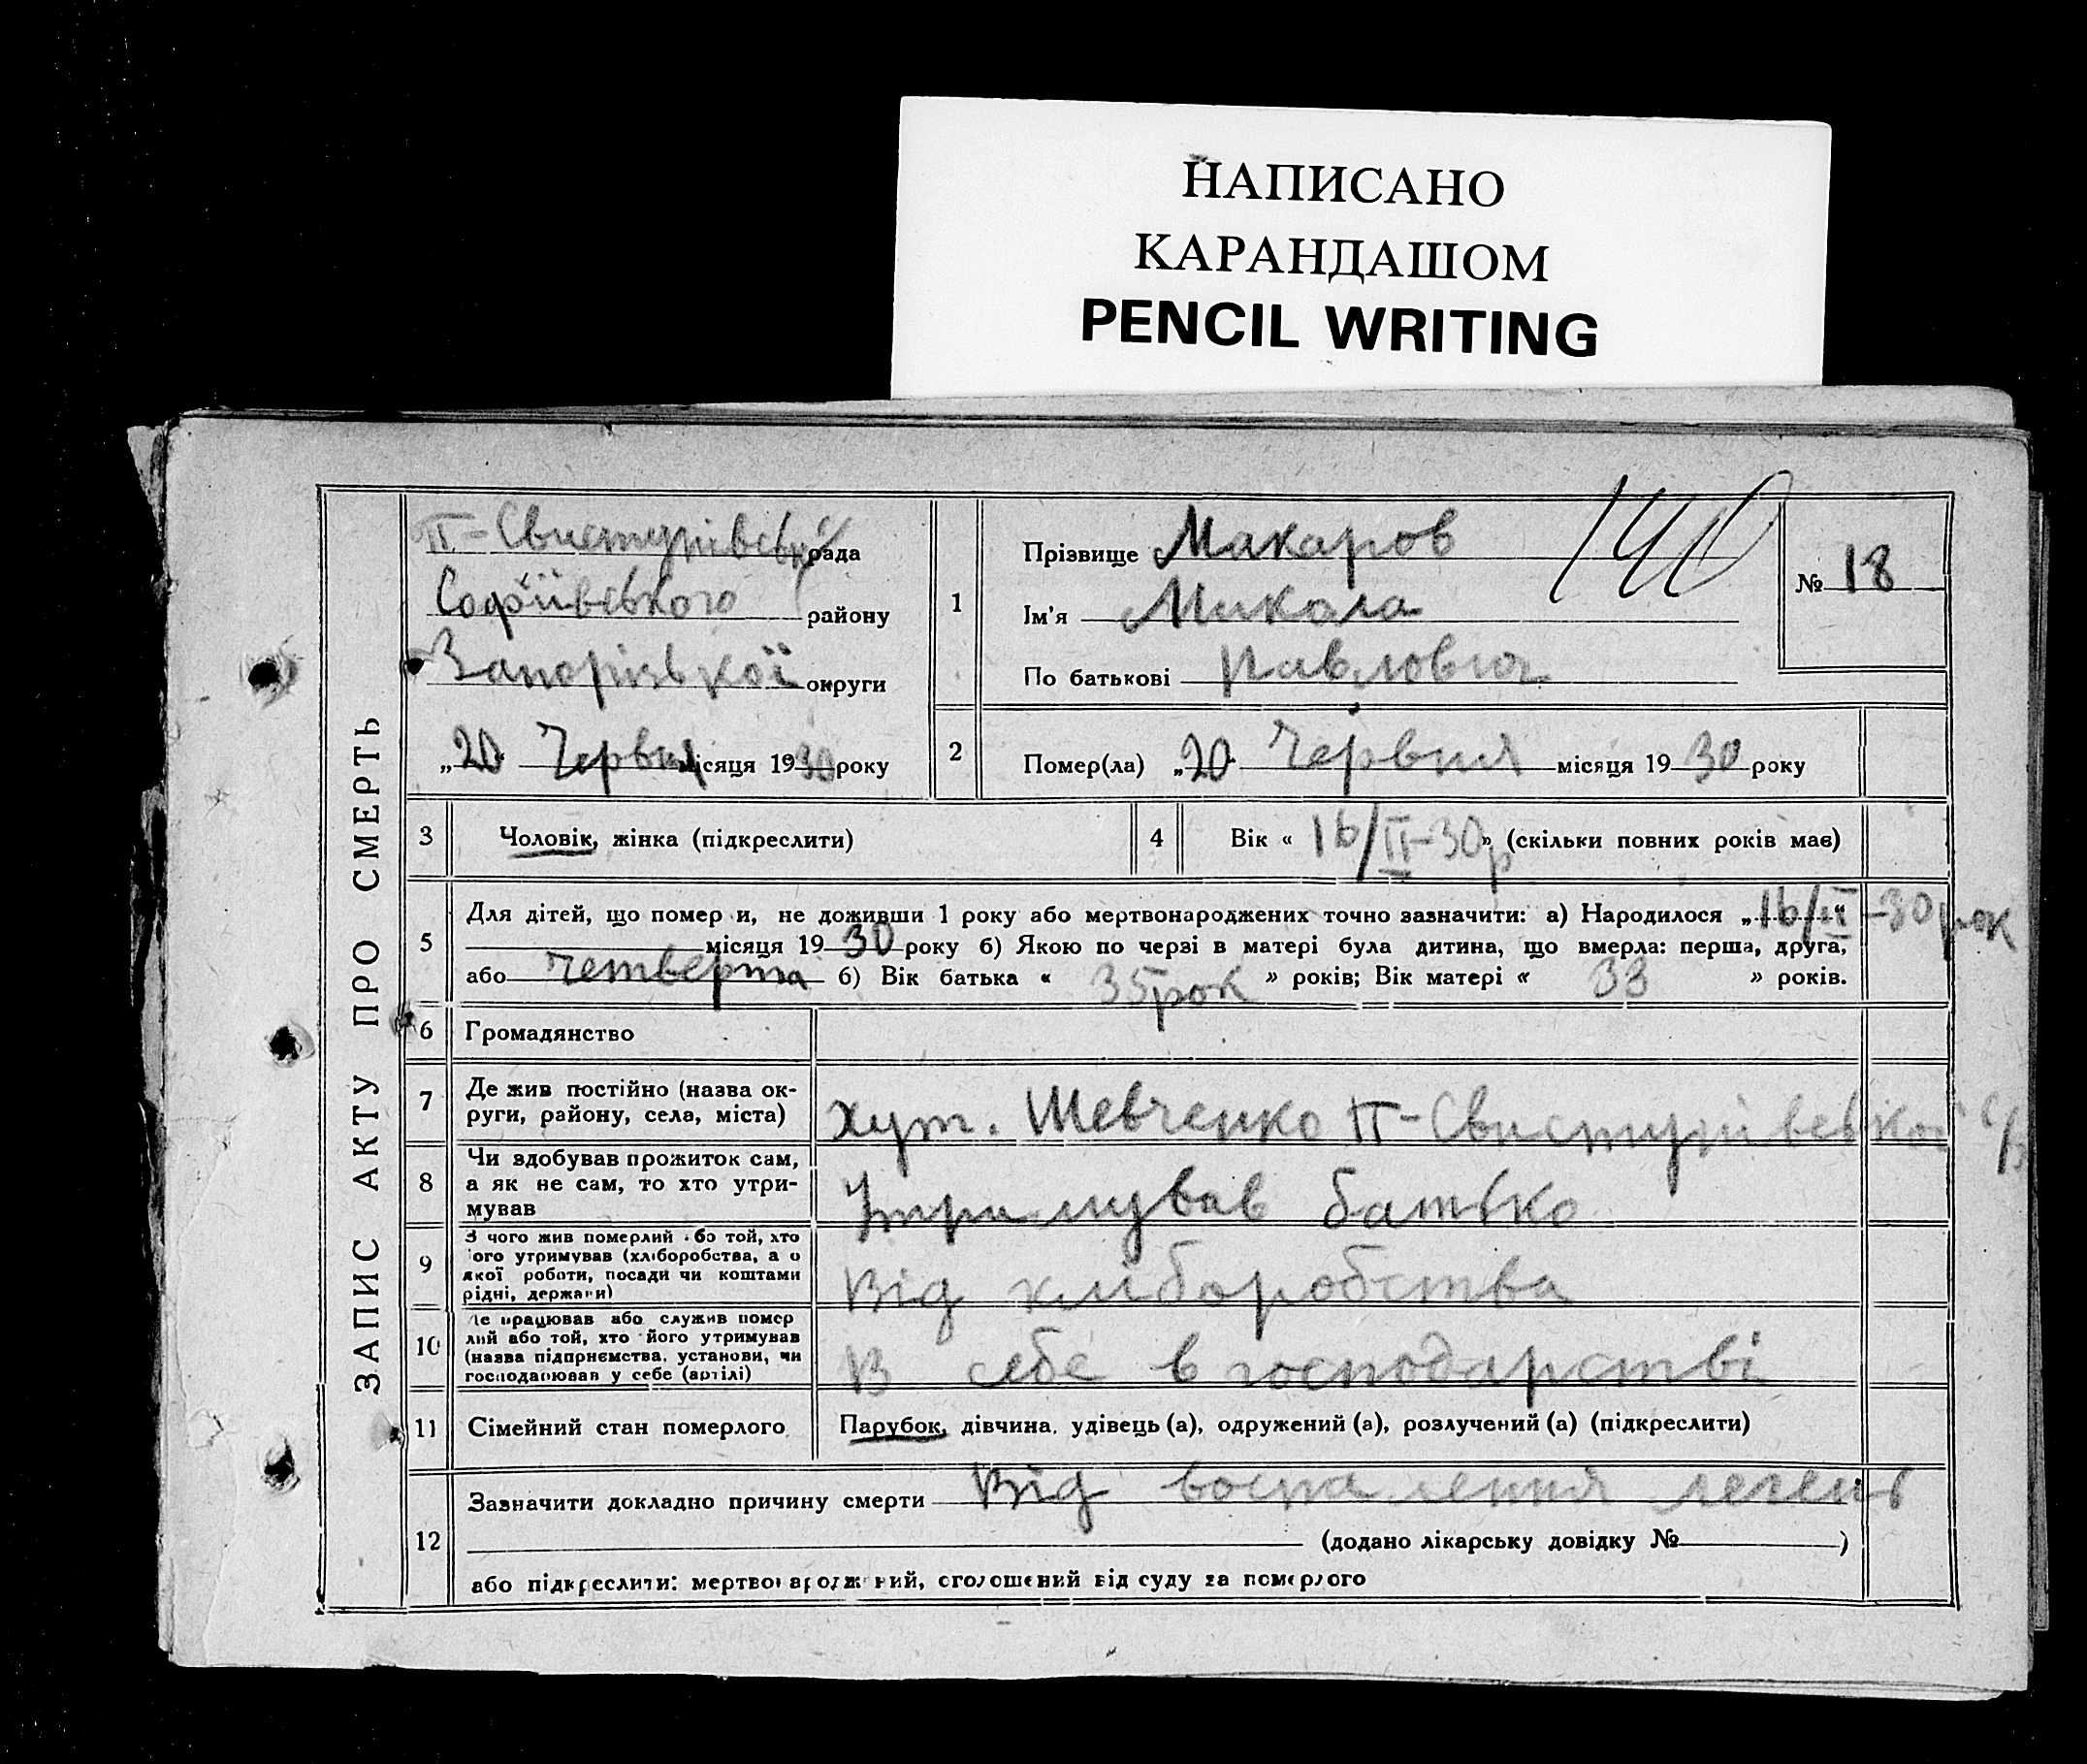 НАПИСАНО
КАРАНДАШОМ
PENCIL WRITING
ЗАПИС АКТУ ПРО СМЕРТЬ
ІІ-Свистунівська рада
Софіївського району
Запорізької округи
„20" Червня місяця 1930 року
1
Прізвище Макаров
140
№ 18
Ім'я Микола
По батькові Павлович
2
Помер(ла) „20" Червня місяця 1930 року
3 Чоловік, жінка (підкреслити)
4 Вік « 16/ІІ-30р » (скільки повних років має)
5
Для дітей, що помер и, не доживши 1 року або мертвонароджених точно зазначити: а) Народилося „16/ІІ-30 рок"
місяця 1930 року б) Якою по черзі в матері була дитина, що вмерла: перша, друга,
або четверта б) Вік батька « 35 рок » років; Вік матері « 33 » років.
6 Громадянство
7 Де жив постійно (назва ок-
руги, району, села, міста)
хут. Шевченко ІІ-Свистунівської с/в
8 Чи здобував прожиток сам,
а як не сам, то хто утри-
мував
Утримував батько
9 З чого жив померлий або той, хто
його утримував (хліборобства, а о
якої роботи, посади чи коштами
рідні, держави)
Від хліборобства
10 Де працював або служив помер
лий або той, хто його утримував
(назва підприємства, установи, чи
господарював у себе (артілі)
В себе в господарстві
11 Сімейний стан померлого
Парубок, дівчина, удівець (а), одружений (а), розлучений (а) (підкреслити)
12
Зазначити докладно причину смерти Від воспалення легень
(додано лікарську довідку № )
або підкреслити: мертвонароджений, оголошений від суду за померлого